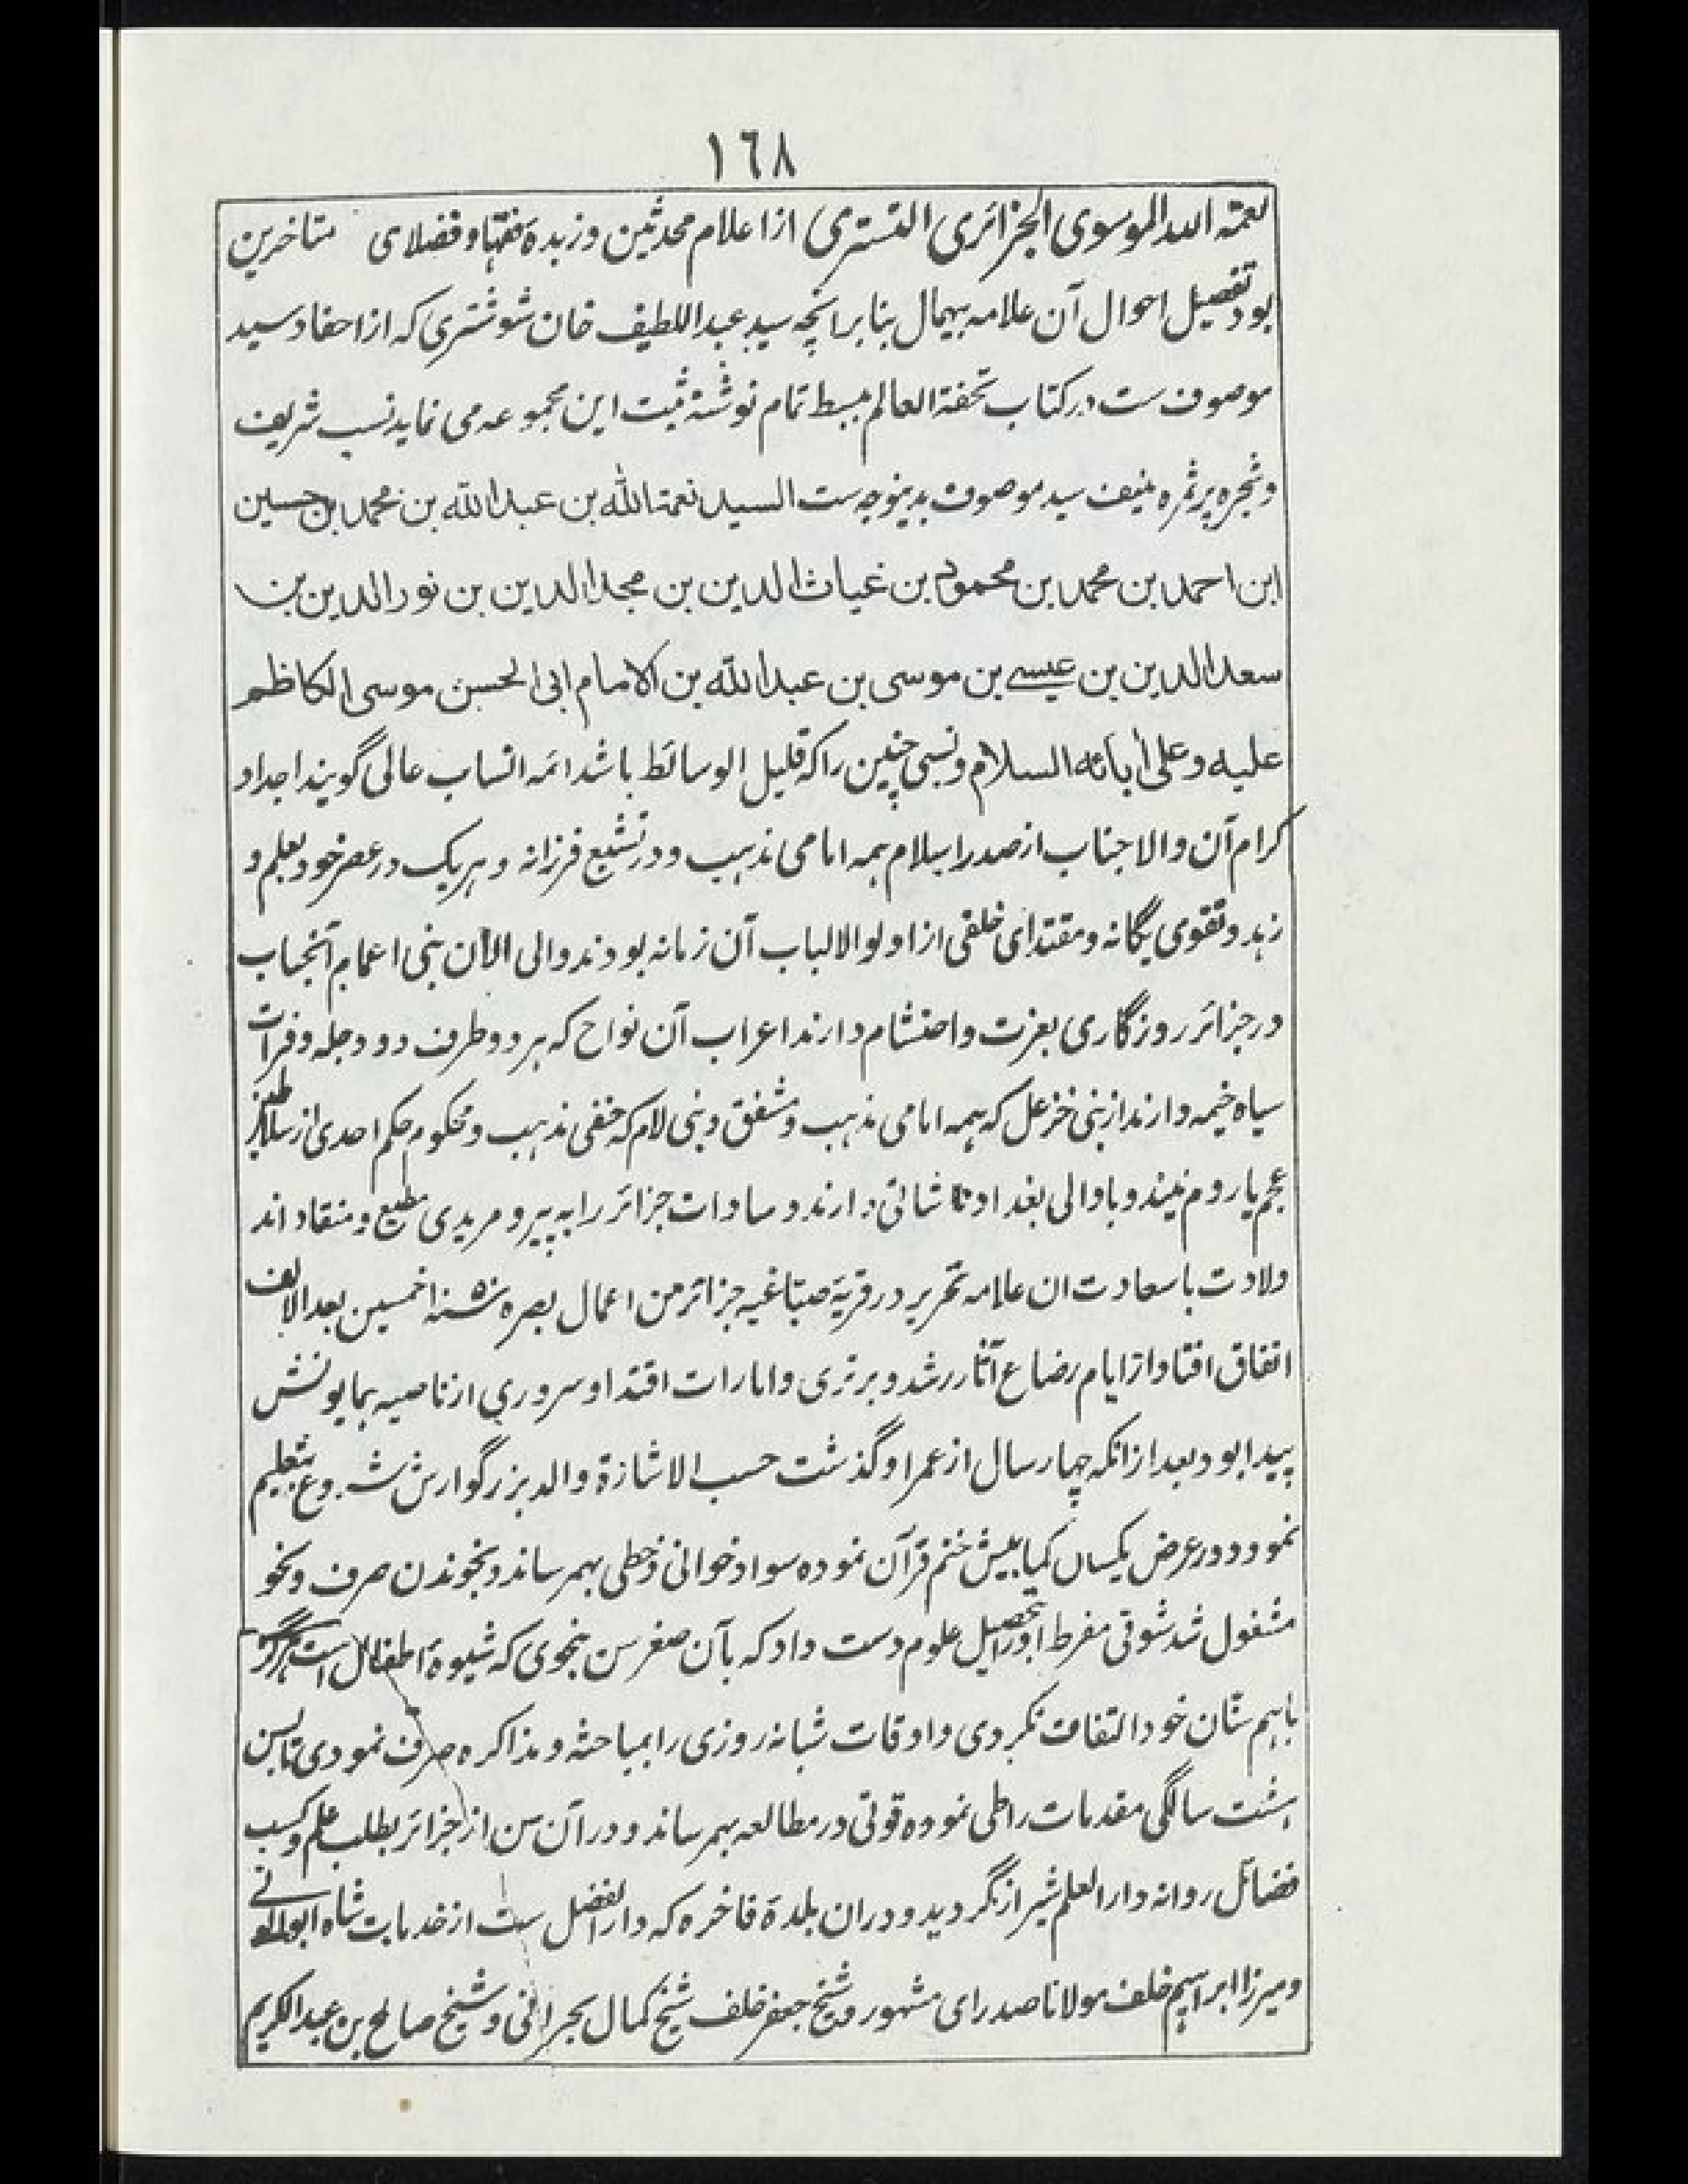 ١٦٨
نعمة الله الموسوی الجزائری التستری از اعلام محدثین و زبدهٔ فقها و فضلای متاخرین
بود تفصیل احوال آن علامه بیهمال بنا بر انچه سید عبد اللطیف خان شوشتری که از احفاد سید
موصوف ست در کتاب تحفة العالم ببسط تمام نوشته ثبت این مجموعه می نماید نسب شریف
و شجره پر ثمره منیف سید موصوف بدینوجه ست السید نعمة الله بن عبد الله بن محمد بن حسین
ابن احمد بن محمد بن محمود بن غیاث الدین بن مجد الدین بن نور الدین بن
سعد الدین بن عیسے بن موسی بن عبد الله بن الامام ابی الحسن موسی الکاظم
علیه و علی اٰبائه السلام و نسبی چنین را که قلیل الوسائط باشد ائمه انساب عالی گویند اجداد
کرام آن والا جناب از صدر اسلام همه امامی مذهب و در تشیع فرزانه و هر یک در عصر خود بعلم و
زهد و تقوی یگانه و مقتدای خلقی از اولو الالباب آن زمانه بودند و الی الآن بنی اعمام آنجناب
در جزائر روزگاری بعزت و احتشام دارند اعراب آن نواح که هر دو طرف دو دجله و فرات
سیاه خیمه دارند از بنی خزعل که همه امامی مذهب و مشفق و بنی لام که حنفی مذهب و محکوم حکم احدی از سلاطین
عجم یا روم نیند و با والی بغداد تا شاتی دارند و سادات جزائر را به پیر و مریدی مطیع و منقاد اند
ولادت با سعادت ان علامه نحریر در قریهٔ صباغیه جزائر من اعمال بصره سنه خمسین بعد الالف
اتفاق افتاد از ایام رضاع آثار رشد و برتری و امارات اقتدا و سروری از ناصیه همایونش
پیدا بود بعد از انکه چهار سال از عمر او گذشت حسب الاشارة والد بزرگوارش شروع بتعلیم
نمود و در عرض یکسال کمابیش ختم قرآن نموده سواد خوانی و خطی بهمرساند و بخوندن صرف و نحو
مشغول شد شوقی مفرط او را بتحصیل علوم دست داد که بآن صغر سن بنحوی که شیوهٔ اطفال است هرگز
با هم سنّان خود التفات نکردی و اوقات شبانه روزی را بمباحثه و مذاکره صرف نمودی تا بسن
هشت سالگی مقدمات را طی نموده قوتی در مطالعه بهم رساند و در آن سن از جزائر بطلب علم و کسب
فضائل روانه دار العلم شیراز گردید و در ان بلدة فاخره که دار الفضل ست از خدمات شاه ابو الولی
و میرزا ابراهیم خلف مولانا صدرای مشهور و شیخ جعفر خلف شیخ کمال بحرانی و شیخ صالح بن عبد الکریم